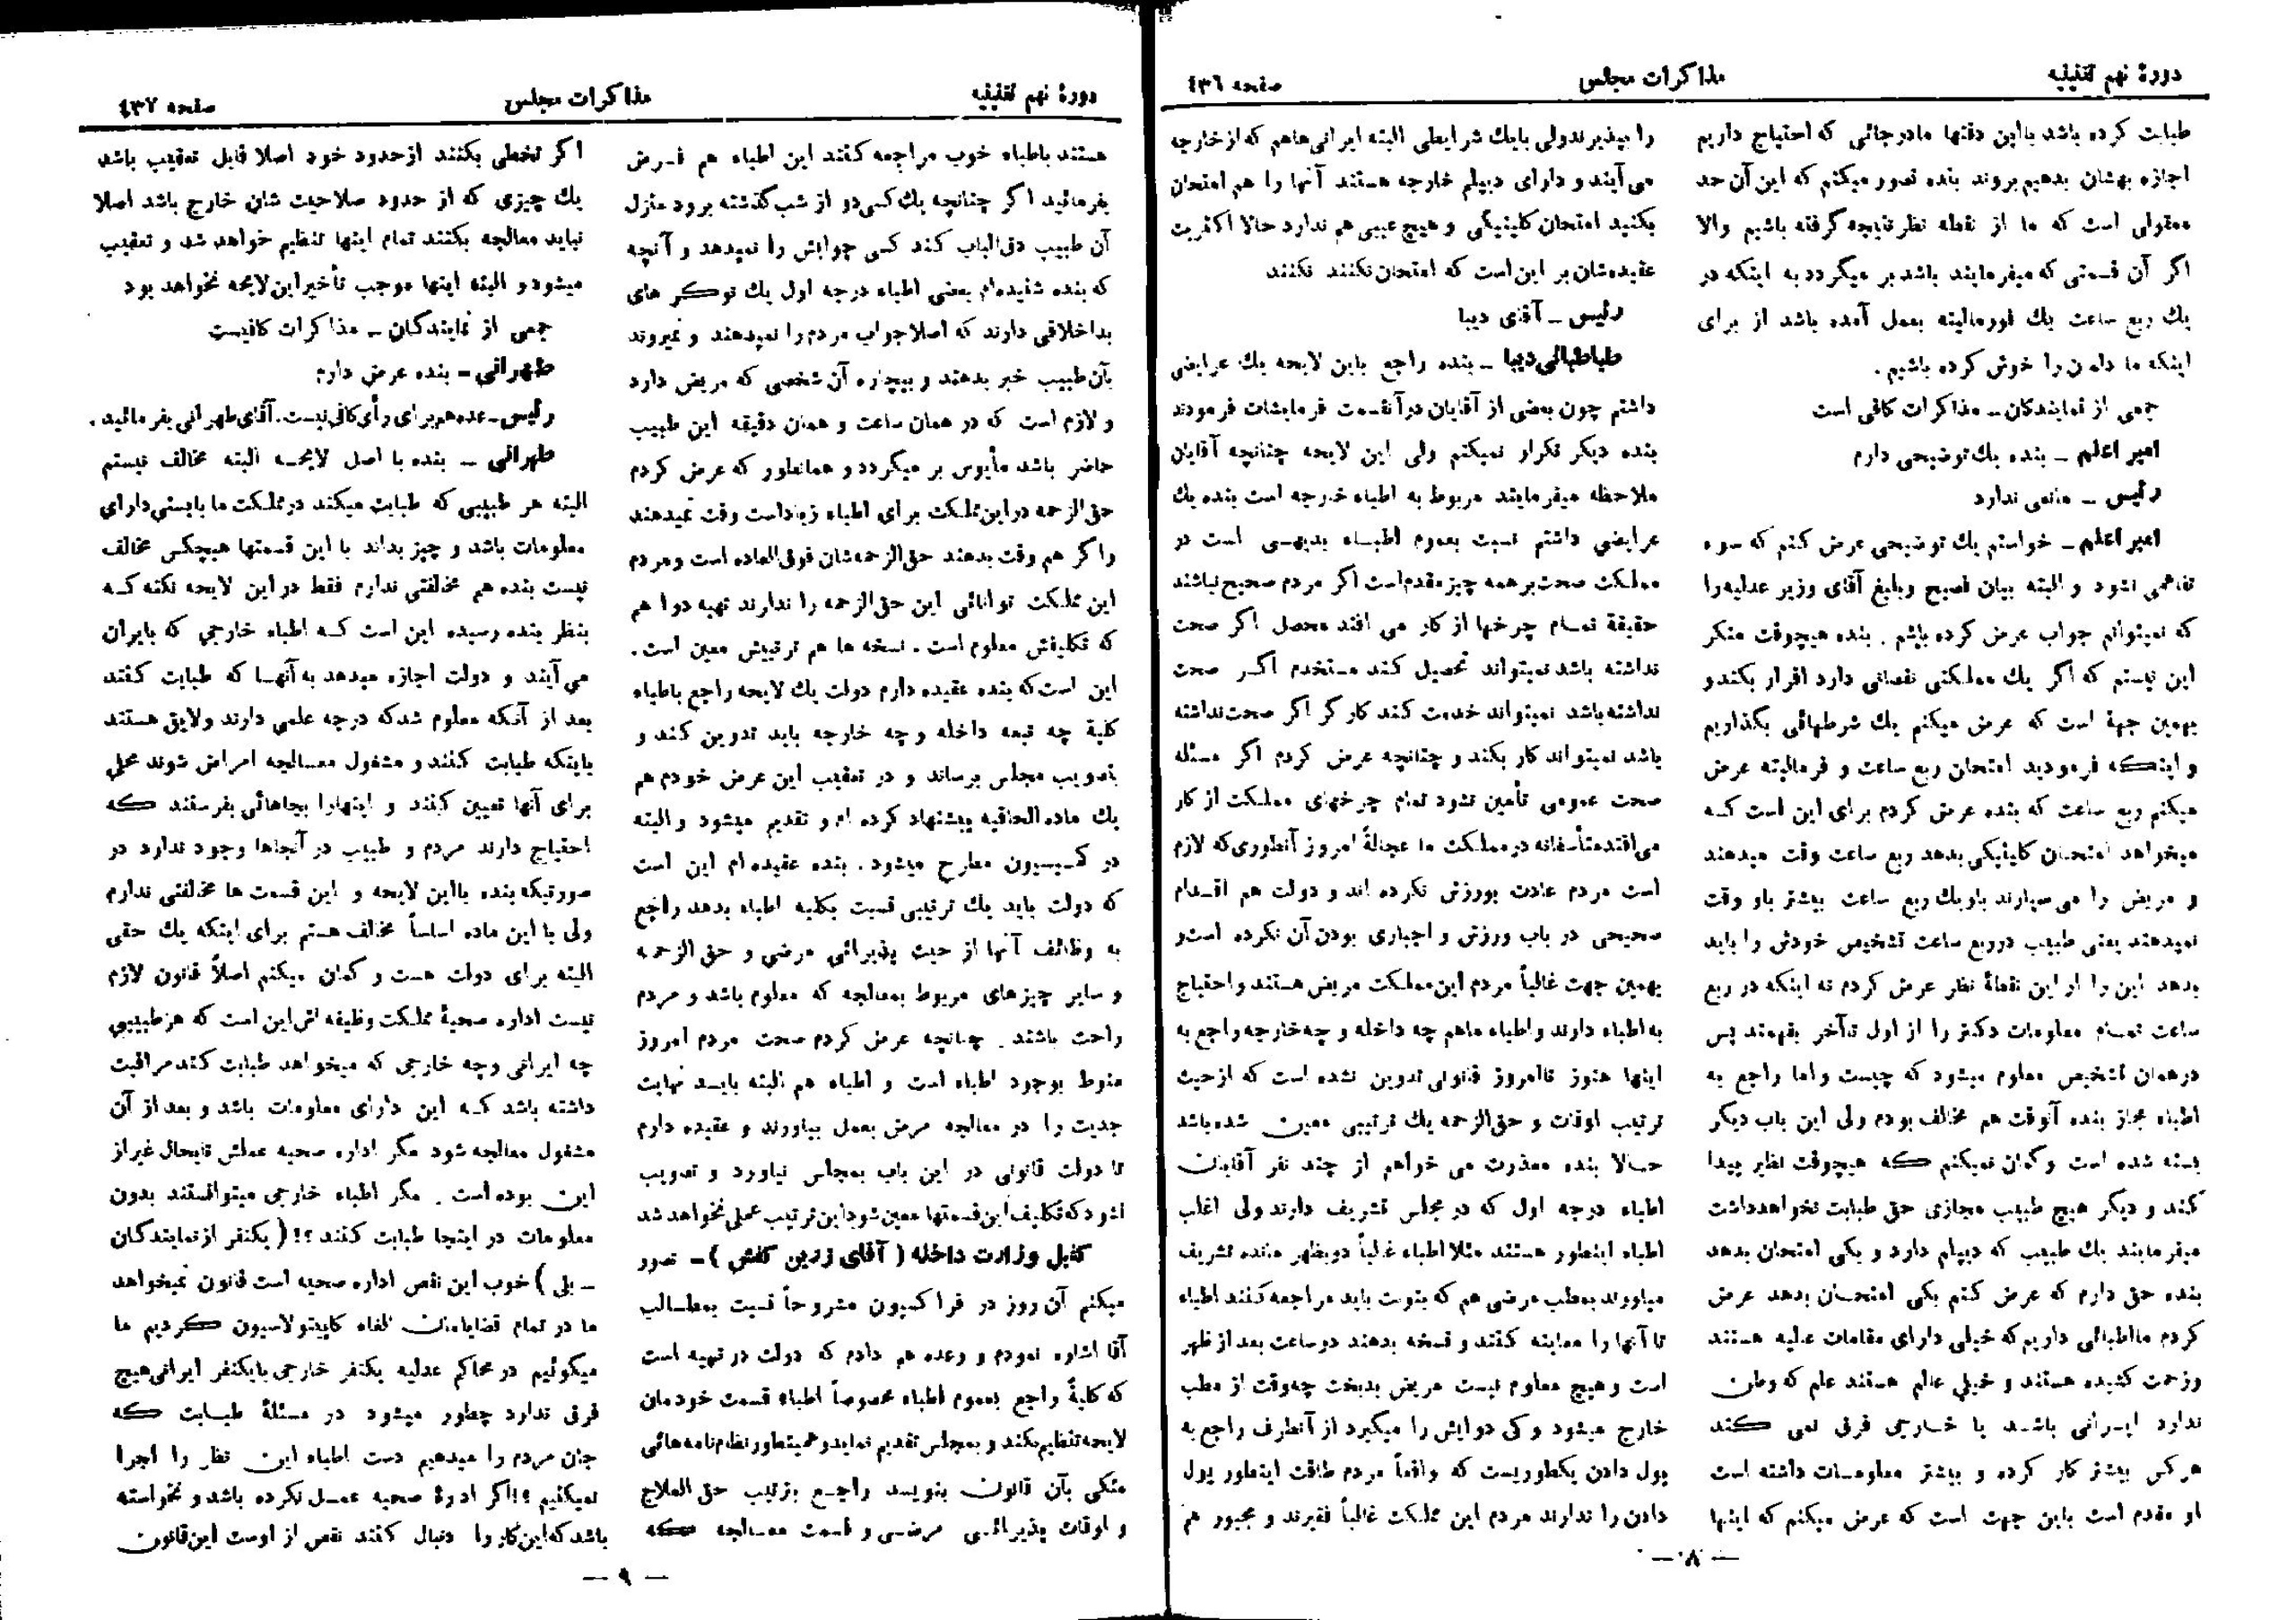 دورهٔ نهم تقنینیه
مذاکرات مجلس
صفحه ٤٣٦
طبابت کرده باشد بااین دقتها مادرجائی که احتیاج داریم
اجازه بهشان بدهیم بروند بنده تصور میکنم که این آن حد
معقولی است که ما از نقطه نظر نتیجه گرفته باشیم والا
اگر آن قسمتی که میفرمایند باشد بر میگردد به اینکه در
یك ربع ساعت یك فورمالیته بعمل آمده باشد از برای
اینکه ما دلمان را خوش کرده باشیم .
جمعی از نمایندگان ـ مذاکرات کافی است
امیر اعلم ـ بنده یك توضیحی دارم
رئیس ـ مانعی ندارد
امیر اعلم ـ خواستم یك توضیحی عرض کنم که سوء
تفاهمی نشود و البته بیان فصیح وبلیغ آقای وزیر عدلیه را
که نمیتوانم جواب عرض کرده باشم . بنده هیچوقت منکر
این نیستم که اگر یك مملکتی نقصانی دارد اقرار بکند و
بهمین جهة است که عرض میکنم یك شرطهائی بگذاریم
و اینکه فرمودید امتحان ربع ساعت و فرمالیته عرض
میکنم ربع ساعت که بنده عرض کردم برای این است که
میخواهد امتحان کلینیکی بدهد ربع ساعت وقت میدهند
و مریض را می سپارند باو یك ربع ساعت بیشتر باو وقت
نمیدهند یعنی طبیب درربع ساعت تشخیص خودش را باید
بدهد این را از این نقطهٔ نظر عرض کردم نه اینکه در ربع
ساعت تمام معلومات دکتر را از اول تاآخر بفهمند پس
درهمان تشخیص معلوم میشود که چیست واما راجع به
اطباء مجاز بنده آنوقت هم مخالف بودم ولی این باب دیگر
بسته شده است وگمان نمیکنم که هیچوقت نظیر پیدا
کند و دیگر هیچ طبیب مجازی حق طبابت نخواهدداشت
میفرمایند یك طبیب که دیپلم دارد و یکی امتحان بدهد
بنده حق دارم که عرض کنم یکی امتحان بدهد عرض
کردم مااطبائی داریم که خیلی دارای مقامات عالیه هستند
وزحمت کشیده هستند و خیلی عالم هستند علم که وطن
ندارد ایرانی باشد یا خارجی فرق نمی کند
هرکس بیشتر کار کرده و بیشتر معلومات داشته است
او مقدم است باین جهت است که عرض میکنم که اینها
را بپذیرندولی بایك شرایطی البته ایرانی هاهم که ازخارجه
می آیند و دارای دیپلم خارجه هستند آنها را هم امتحان
بکنید امتحان کلینیکی و هیچ عیبی هم ندارد حالا اکثریت
عقیده شان بر این است که امتحان نکنند نکنند
رئیس ـ آقای دیبا
طباطبائی دیبا ـ بنده راجع باین لایحه یك عرایضی
داشتم چون بعضی از آقایان درآنقسمت فرمایشات فرمودند
بنده دیگر تکرار نمیکنم ولی این لایحه چنانچه آقایان
ملاحظه میفرمایند مربوط به اطباء خارجه است بنده یك
عرایضی داشتم نسبت بعموم اطباء بدیهی است در
مملکت صحت برهمه چیز مقدم است اگر مردم صحیح نباشند
حقیقة تمام چرخها از کار می افتد محصل اگر صحت
نداشته باشد نمیتواند تحصیل کند مستخدم اگر صحت
نداشته باشد نمیتواند خدمت کند کارگر اگر صحت نداشته
باشد نمیتواند کار بکند و چنانچه عرض کردم اگر مسئله
صحت عمومی تأمین نشود تمام چرخهای مملکت از کار
می افتد متأسفانه درمملکت ما عجالةً امروز آنطوری که لازم
است مردم عادت بورزش نکرده اند و دولت هم اقدام
صحیحی در باب ورزش و اجباری بودن آن نکرده است و
بهمین جهت غالباً مردم این مملکت مریض هستند و احتیاج
به اطباء دارند و اطباء ماهم چه داخله و چه خارجه راجع به
اینها هنوز تاامروز قانونی تدوین نشده است که ازحیث
ترتیب اوقات و حق الزحمه یك ترتیبی معین شده باشد
حالا بنده معذرت می خواهم از چند نفر آقایان
اطباء درجه اول که در مجلس تشریف دارند ولی اغلب
اطباء اینطور هستند مثلا اطباء غالباً دو بظهر مانده تشریف
میاورند بمطب مرضی هم که بنوبت باید مراجعه کنند اطباء
تا آنها را معاینه کنند و نسخه بدهند دوساعت بعد از ظهر
است و هیچ معلوم نیست مریض بدبخت چه وقت از مطب
خارج میشود و کی دوایش را میگیرد از آنطرف راجع به
پول دادن یکطوریست که واقعاً مردم طاقت اینطور پول
دادن را ندارند مردم این مملکت غالباً فقیرند و مجبور هم
— ٨ —
دورهٔ نهم تقنینیه
مذاکرات مجلس
صفحه ٤٣٧
هستند باطباء خوب مراجعه کنند این اطباء هم فرض
بفرمائید اگر چنانچه یك کسی دو از شب گذشته برود منزل
آن طبیب دق الباب کند کسی جوابش را نمیدهد و آنچه
که بنده شنیده ام بعضی اطباء درجه اول یك نوکر های
بداخلاقی دارند که اصلا جواب مردم را نمیدهند و نمیروند
بآن طبیب خبر بدهند و بیچاره آن شخصی که مریض دارد
و لازم است که در همان ساعت و همان دقیقه این طبیب
حاضر باشد مأیوس بر میگردد و همانطور که عرض کردم
حق الزحمه دراین مملکت برای اطباء زیاداست وقت نمیدهند
واگر هم وقت بدهند حق الزحمه شان فوق العاده است ومردم
این مملکت توانائی این حق الزحمه را ندارند تهیه دوا هم
که تکلیفش معلوم است . نسخه ها هم ترتیبش معین است .
این است که بنده عقیده دارم دولت یك لایحه راجع باطباء
کلیة چه تبعه داخله و چه خارجه باید تدوین کند و
بتصویب مجلس برساند و در تعقیب این عرض خودم هم
یك ماده الحاقیه پیشنهاد کرده ام و تقدیم میشود و البته
در کمیسیون مطرح میشود . بنده عقیده ام این است
که دولت باید یك ترتیبی نسبت بکلیه اطباء بدهد راجع
به وظائف آنها از حیث پذیرائی مرضی و حق الزحمه
و سایر چیزهای مربوط بمعالجه که معلوم باشد و مردم
راحت باشند . چنانچه عرض کردم صحت مردم امروز
منوط بوجود اطباء است و اطباء هم البته باید نهایت
جدیت را در معالجه مرض بعمل بیاورند و عقیده دارم
تا دولت قانونی در این باب بمجلس نیاورد و تصویب
نشود که تکلیف این قسمتها معین شود این ترتیب عملی نخواهد شد
کفیل وزارت داخله ( آقای زرین کفش ) ـ تصور
میکنم آن روز در فراکسیون مشروحاً نسبت بمطالب
آقا اشاره نمودم و وعده هم دادم که دولت در تهیه است
که کلیةً راجع بعموم اطباء مخصوصاً اطباء قسمت خودمان
لایحه تنظیم بکند و بمجلس تقدیم نماید و همینطور نظام نامه هائی
متکی بآن قانون بنویسد راجع بترتیب حق العلاج
و اوقات پذیرائی مرضی و قسمت معالجه که
اگر تخطی بکنند ازحدود خود اصلا قابل تعقیب باشد
یك چیزی که از حدود صلاحیت شان خارج باشد اصلا
نباید معالجه بکنند تمام اینها تنظیم خواهد شد و تعقیب
میشود و البته اینها موجب تأخیر این لایحه نخواهد بود
جمعی از نمایندگان ـ مذاکرات کافیست
طهرانی ـ بنده عرض دارم
رئیس ـ عده هم برای رأی کافی نیست. آقای طهرانی بفرمائید .
طهرانی ـ بنده با اصل لایحه البته مخالف نیستم
البته هر طبیبی که طبابت میکند درمملکت ما بایستی دارای
معلومات باشد و چیز بداند با این قسمتها هیچکس مخالف
نیست بنده هم مخالفتی ندارم فقط در این لایحه نکته که
بنظر بنده رسیده این است که اطباء خارجی که بایران
می آیند و دولت اجازه میدهد به آنها که طبابت کنند
بعد از آنکه معلوم شد که درجه علمی دارند ولایق هستند
باینکه طبابت کنند و مشغول معالجه امراض شوند محلی
برای آنها تعیین کنند و اینهارا بجاهائی بفرستند که
احتیاج دارند مردم و طبیب در آنجاها وجود ندارد در
صورتیکه بنده بااین لایحه و این قسمت ها مخالفتی ندارم
ولی با این ماده اساساً مخالف هستم برای اینکه یك حقی
البته برای دولت هست و گمان میکنم اصلاً قانون لازم
نیست اداره صحیهٔ مملکت وظیفه اش این است که هرطبیبی
چه ایرانی وچه خارجی که میخواهد طبابت کند مراقبت
داشته باشد که این دارای معلومات باشد و بعد از آن
مشغول معالجه شود مگر اداره صحیه عملش تابحال غیر از
این بوده است . مگر اطباء خارجی میتوانستند بدون
معلومات در اینجا طبابت کنند ؟! ( یکنفر از نمایندگان
ـ بلی ) خوب این نقص اداره صحیه است قانون نمیخواهد
ما در تمام قضایامان الغاء کاپیتولاسیون کردیم ما
میگوئیم در محاکم عدلیه یکنفر خارجی بایکنفر ایرانی هیچ
فرق ندارد چطور میشود در مسئلهٔ طبابت که
جان مردم را میدهیم دست اطباء این نظر را اجرا
نمیکنیم ؟! اگر ادارهٔ صحیه عمل نکرده باشد و نخواسته
باشد که این کار را دنبال کنند نقص از اوست این قانون
— ٩ —